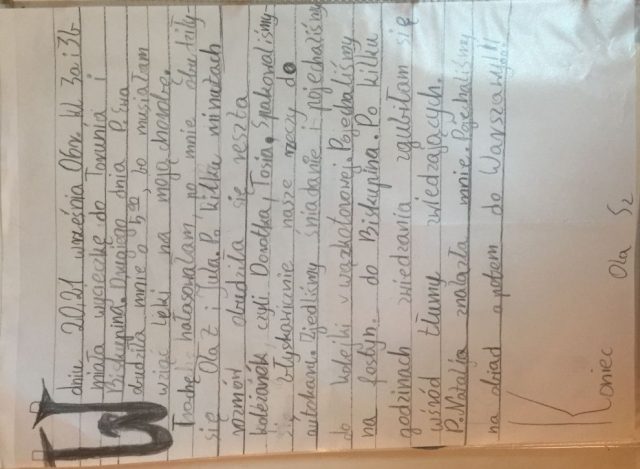 W dniu 2021 września Obn. kl. 3a i 3b
miała wycieczkę do Torunia i
Biskupina. Drugiego dnia P. Ewa
obudziła mnie o 5:00, bo musiałam
wziąć leki na moją chorobę.
Trochę hałasowałam, po mnie obudziły-
się Ola Ż i Jula. Po kilku minutach
rozmów obudziła się reszta
koleżanek, czyli Dorotka, Tosia. Spakowaliśmy-
się błyskawicznie nasze rzeczy do
autokaru. Zjedliśmy śniadanie i pojechaliśmy
do kolejki wązkotorowej. Pojechaliśmy
na do Biskupina. Po kilku
godzinach zwiedzania zgubiłam się
wśród tłumy zwiedzających.
P. Natalia znalazła mnie. Pojechaliśmy
na obiad a potem do Warszawy!!!
Koniec Ola Sz